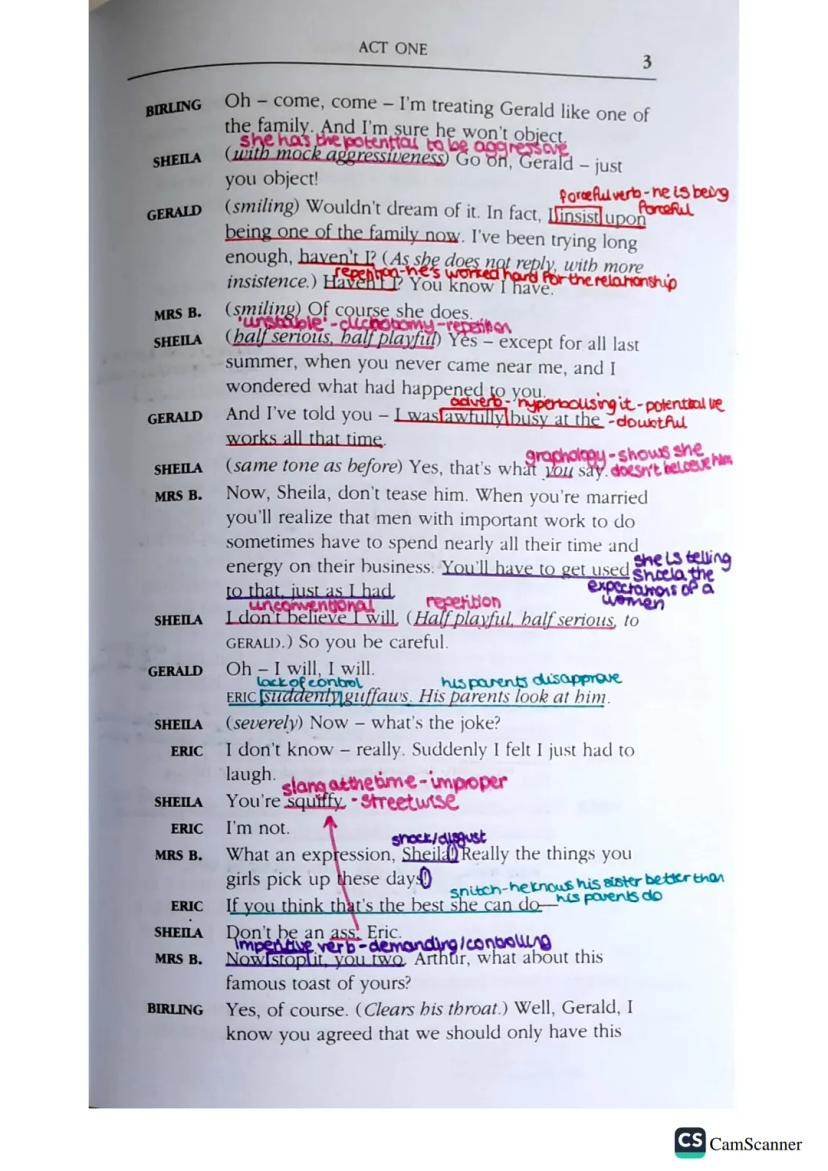 ACT ONE
3
BIRLING Oh – come, come – I'm treating Gerald like one of
the family. And I'm sure he won't object.
she has the potential to be aggressive
SHEILA (with mock aggressiveness) Go on, Gerald – just
you object!
forceful verb - he is being
forceful
GERALD (smiling) Wouldn't dream of it. In fact, I insist upon
being one of the family now. I've been trying long
enough, haven't I? (As she does not reply, with more
repetition - he's worked hard for the relationship
insistence.) Haven't I? You know I have.
MRS B. (smiling) Of course she does.
'unstable' - dichotomy - repetition
SHEILA (half serious, half playful) Yes – except for all last
summer, when you never came near me, and I
wondered what had happened to you.
adverb - hyperbolising it - potential lie
GERALD And I've told you – I was awfully busy at the - doubtful
works all that time.
graphology - shows she
SHEILA (same tone as before) Yes, that's what you say. doesn't believe him
MRS B. Now, Sheila, don't tease him. When you're married
you'll realize that men with important work to do
sometimes have to spend nearly all their time and
energy on their business. You'll have to get used
she is telling
Sheila the
expectations of a
women
to that, just as I had.
unconventional repetition
SHEILA I don't believe I will. (Half playful, half serious, to
GERALD.) So you be careful.
GERALD Oh – I will, I will.
lack of control his parents disapprove
ERIC suddenly guffaws. His parents look at him.
SHEILA (severely) Now – what's the joke?
ERIC I don't know – really. Suddenly I felt I just had to
laugh.
slang at the time - improper
SHEILA You're squiffy. - streetwise
ERIC I'm not.
shock/disgust
MRS B. What an expression, Sheila! Really the things you
girls pick up these days!
snitch - he knows his sister better than
his parents do
ERIC If you think that's the best she can do—
SHEILA Don't be an ass, Eric.
Imperitive verb - demanding/controlling
MRS B. Now stop it, you two. Arthur, what about this
famous toast of yours?
BIRLING Yes, of course. (Clears his throat.) Well, Gerald, I
know you agreed that we should only have this
CS CamScanner